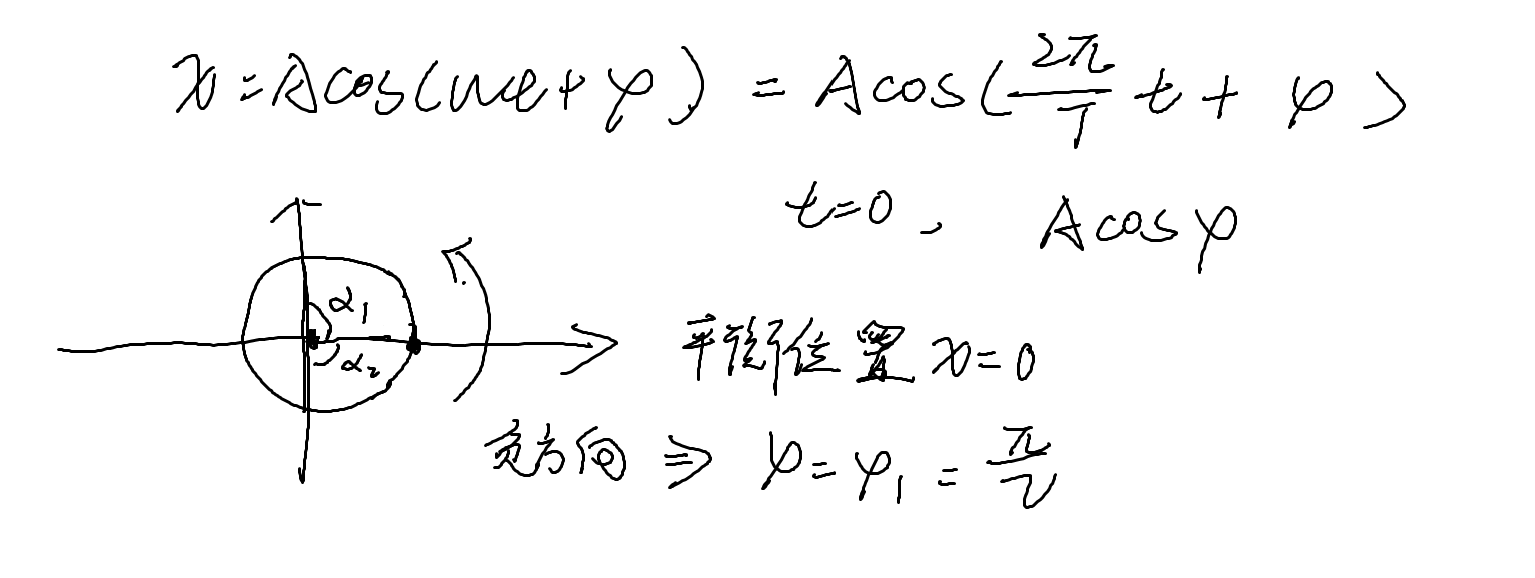 x=Acos(ωt+φ)=Acos(2π/T t+φ)
t=0, Acosφ
α₁
α₂
平衡位置 x=0
负方向 ⇒ φ=φ₁=π/2